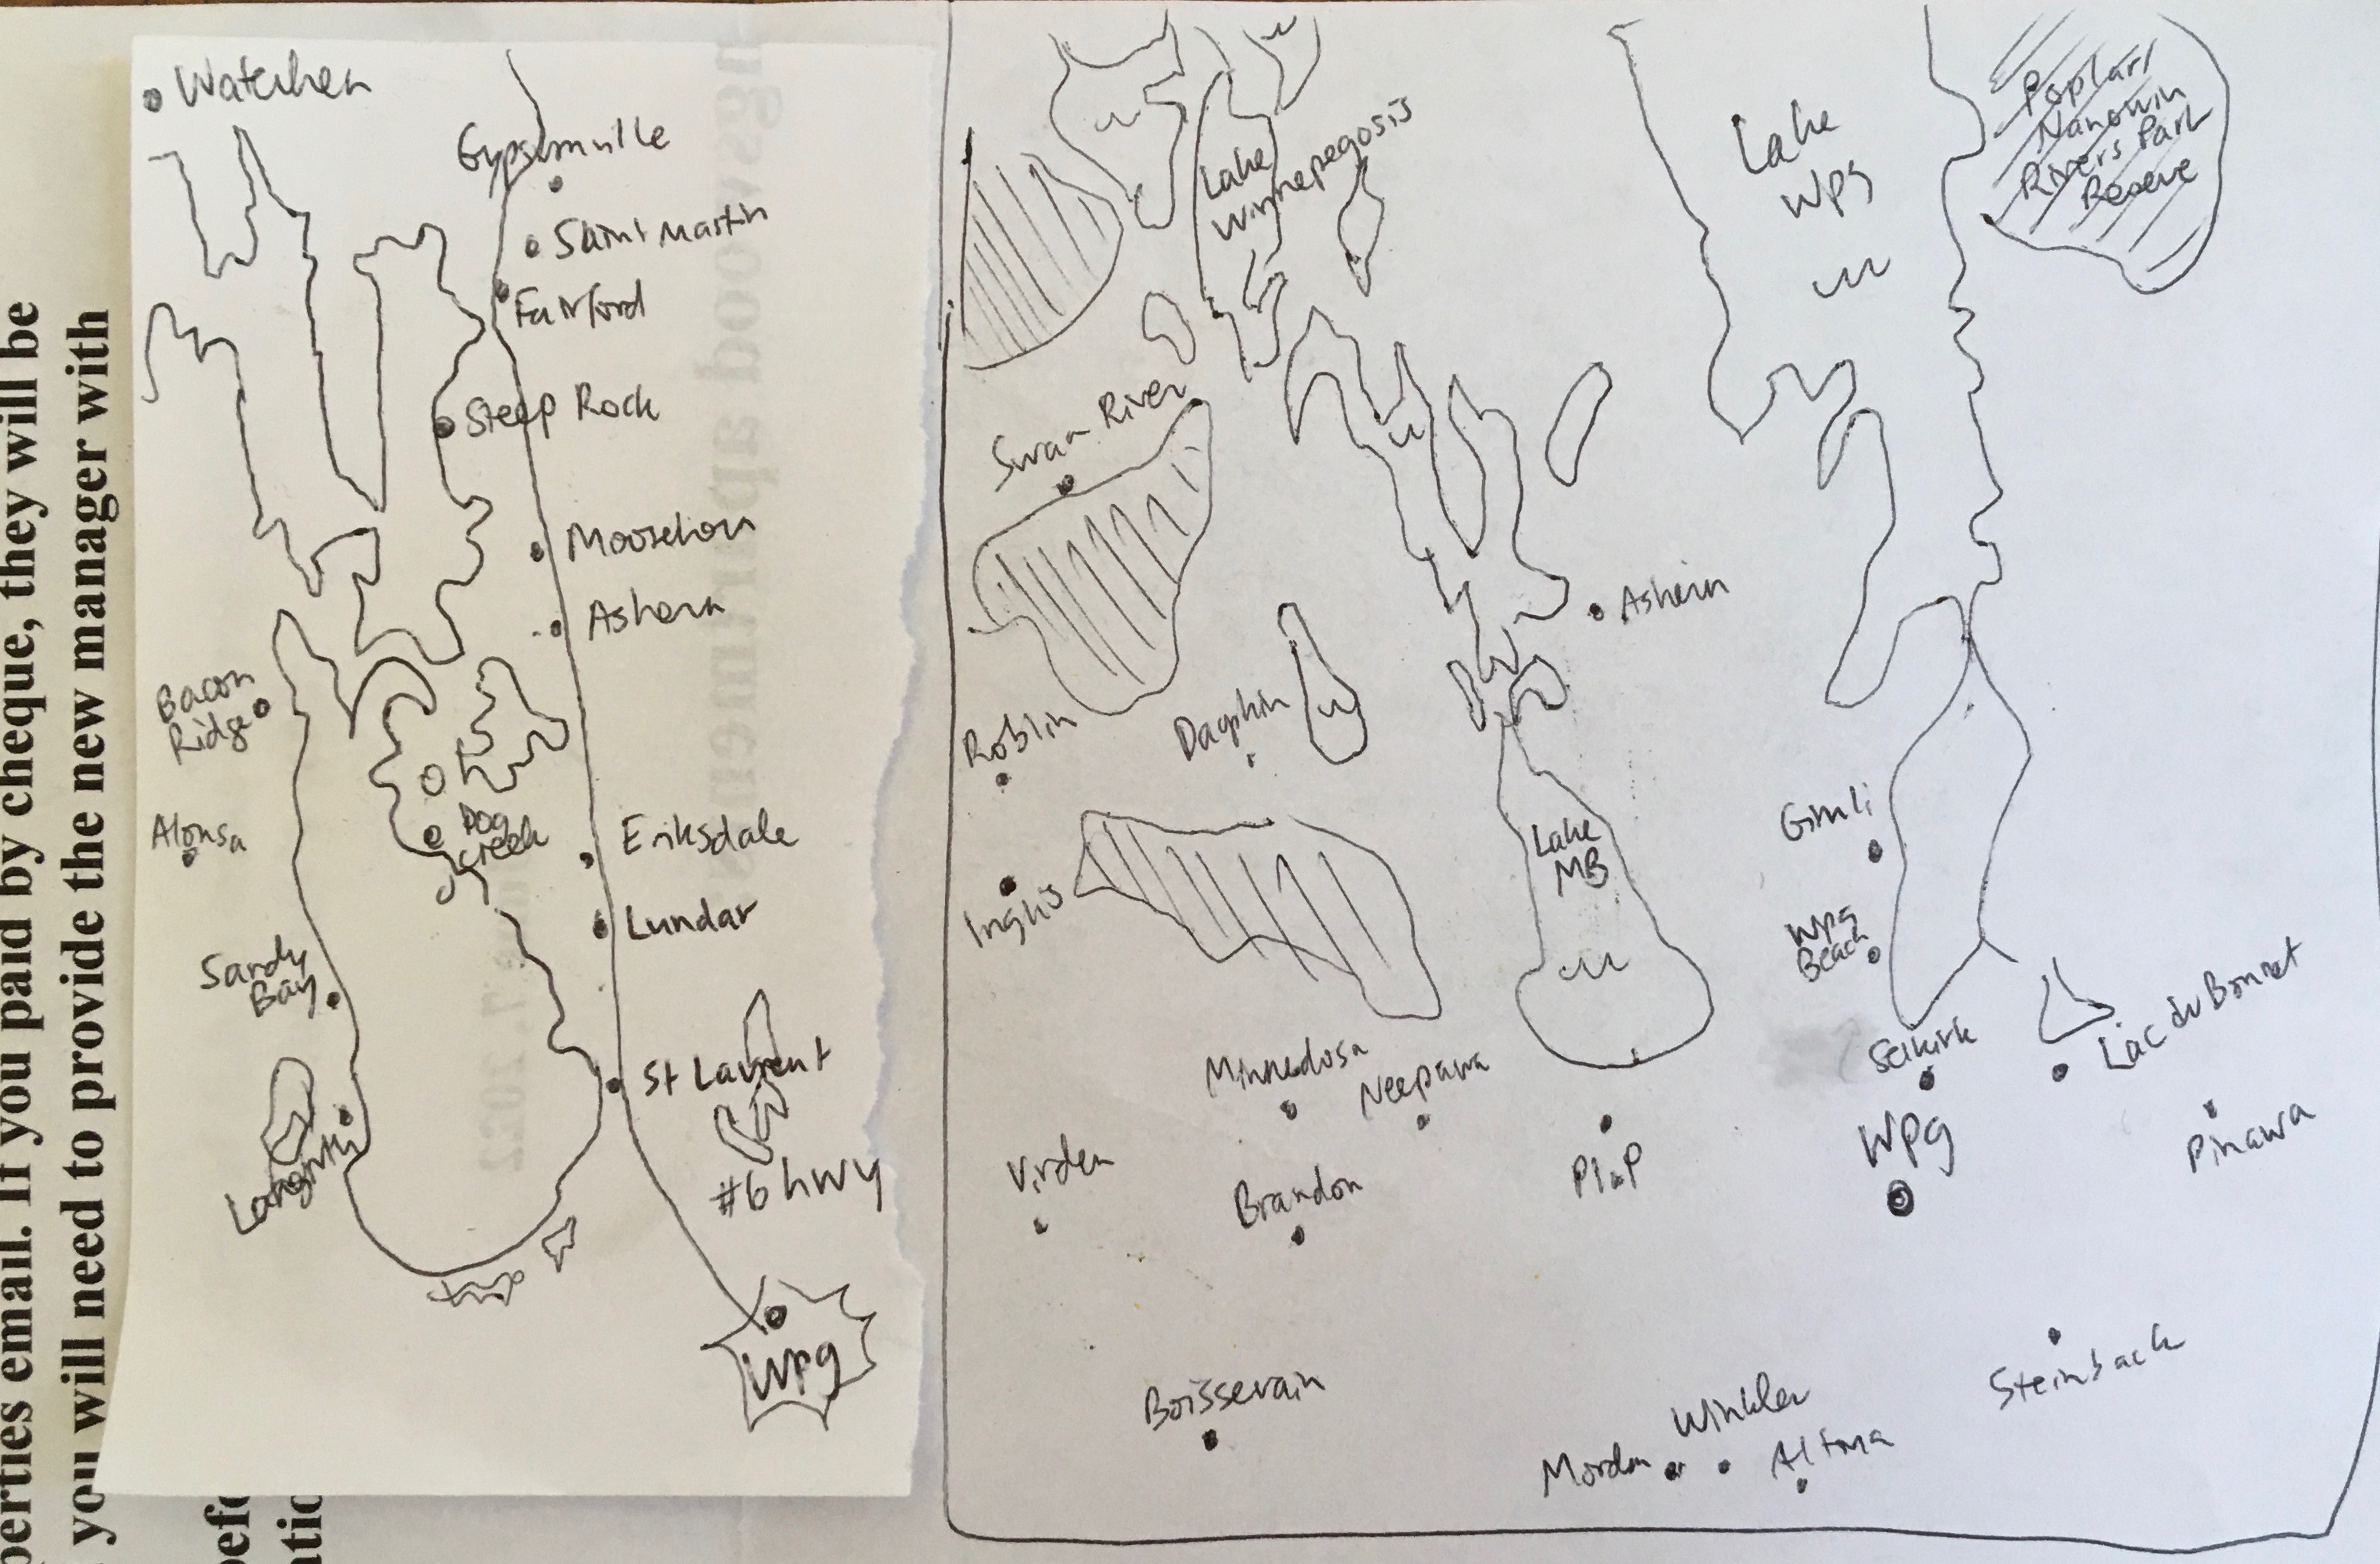 perties email. If you paid by cheque, they will be
you will need to provide the new manager with
Waterhen
Gypsumville
Saint Martin
Fairford
Steep Rock
Moosehorn
Ashern
Bacon
Ridge
Alonsa
Dog
Creek
Eriksdale
Lundar
Sandy
Bay
St Laurent
Langruth
#6 hwy
Wpg
Lake
Winnepegosis
Lake
Wpg
Poplar/
Nanowin
Rivers Park
Reserve
Swan River
Ashern
Roblin
Dauphin
Lake
MB
Gimli
Inglis
Wpg
Beach
Lac du Bonnet
Selkirk
Minnedosa
Neepawa
Wpg
Pinawa
Virden
Brandon
PlaP
Steinback
Boissevain
Winkler
Morden
Altona